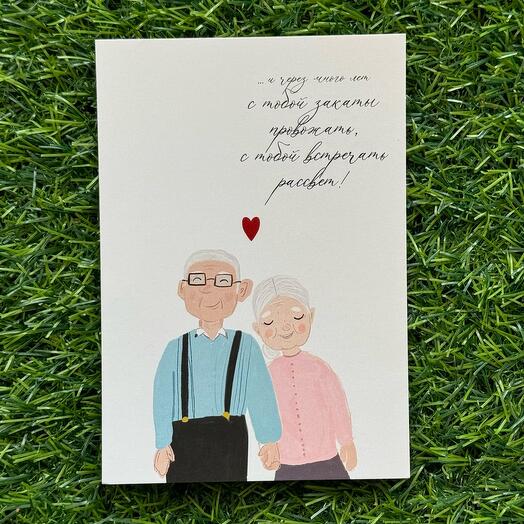 ...и через много лет
с тобой закаты
провожать,
с тобой встречать
рассвет!